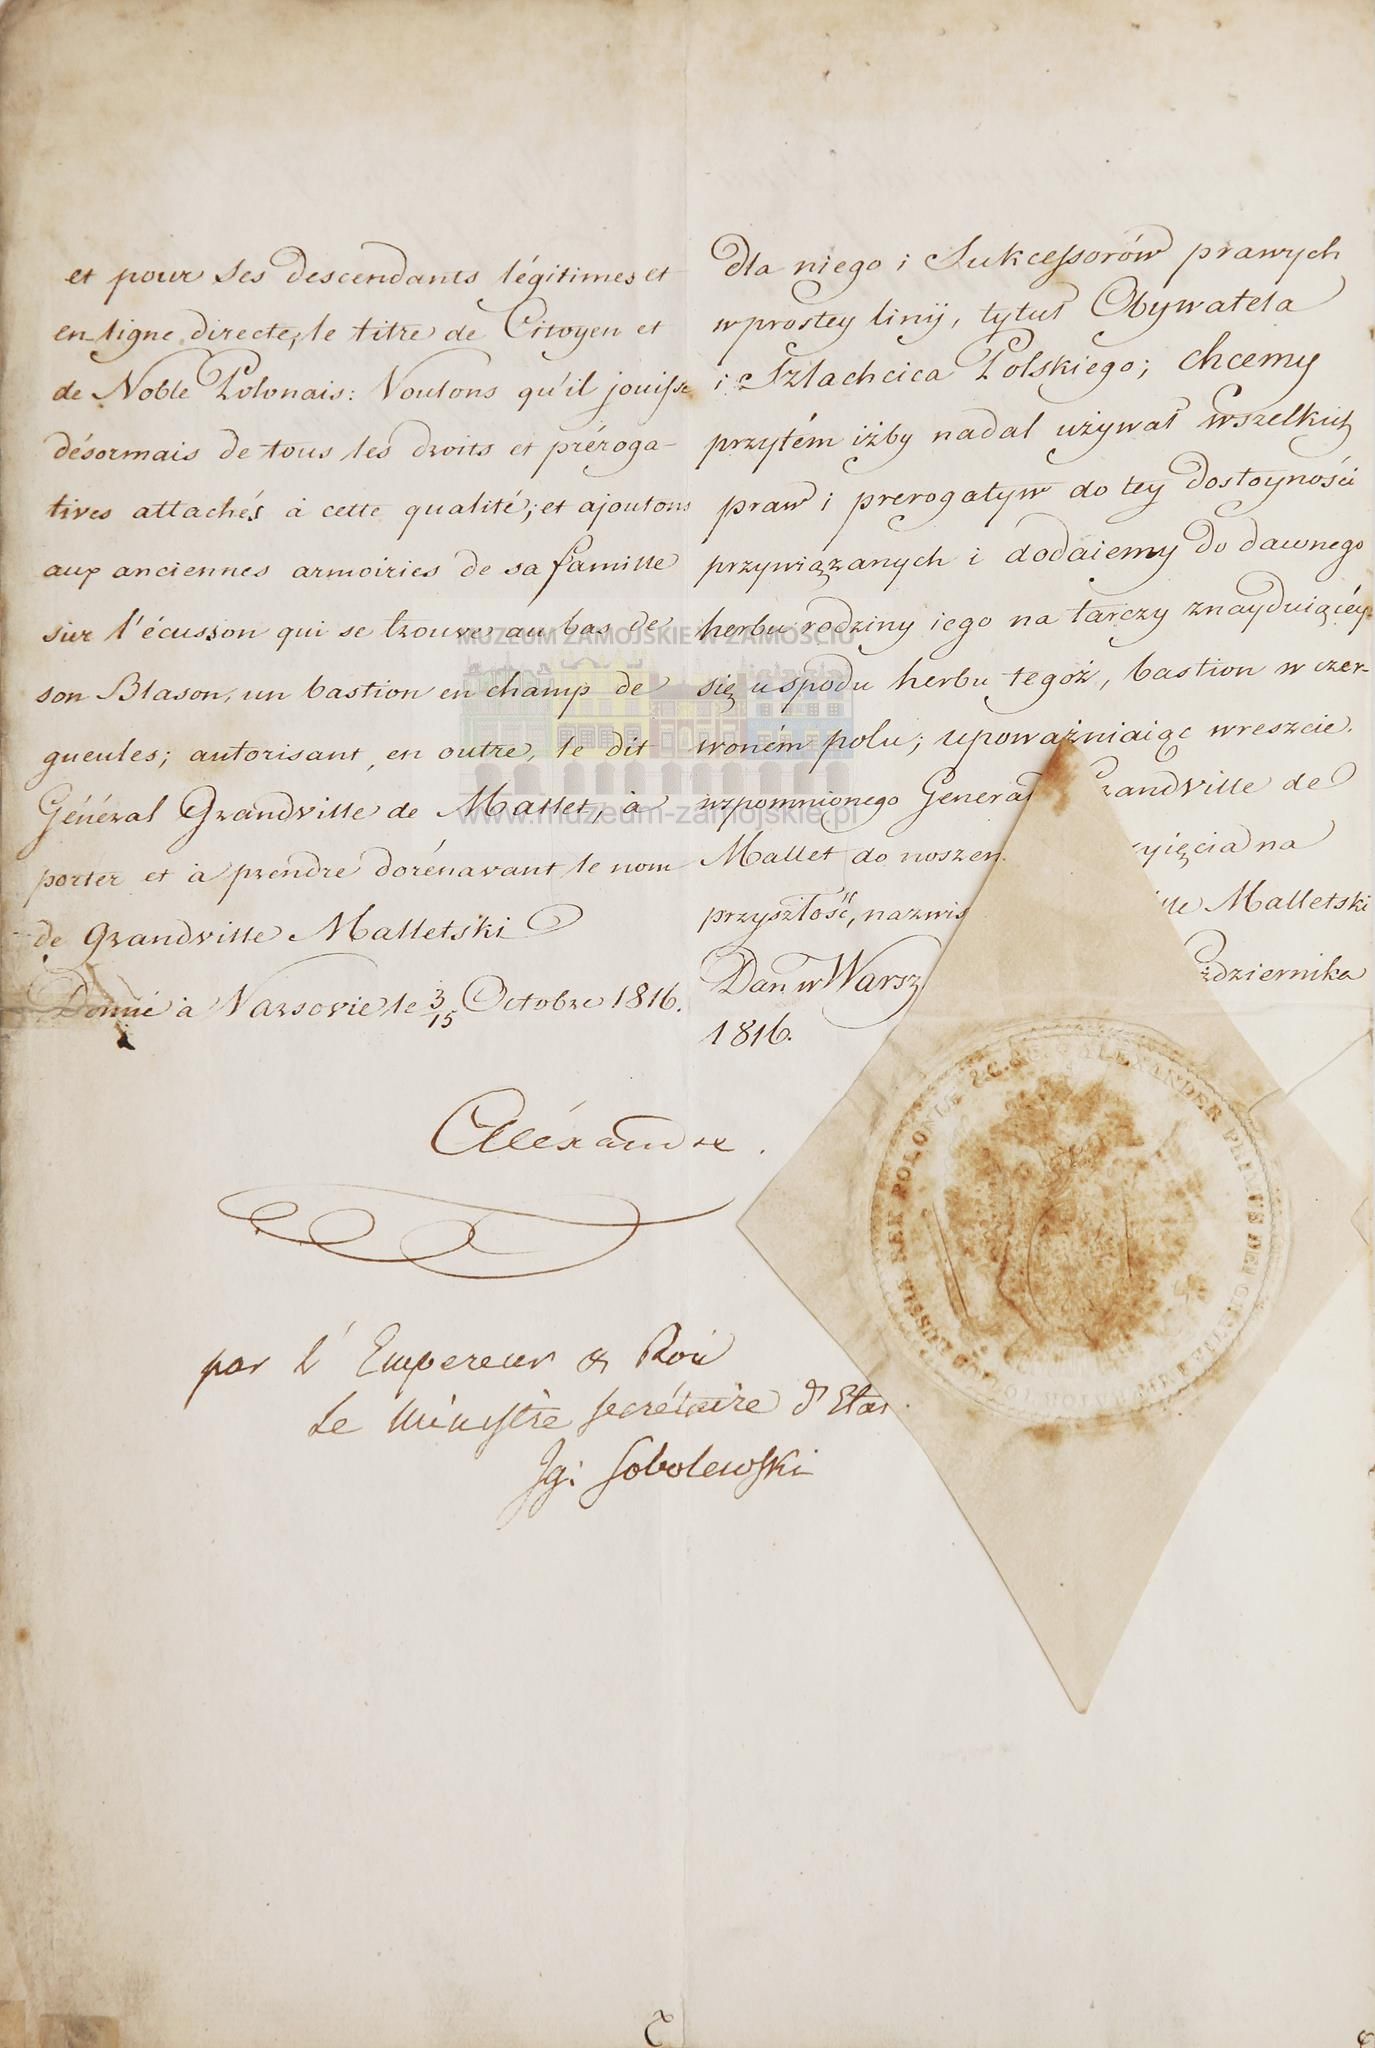 et pour ses descendants légitimes et
en ligne directe, le titre de Citoyen et
de Noble Polonais: Voulons qu'il jouisse
désormais de tous les droits et préroga-
tives attachés à cette qualité; et ajoutons
aux anciennes armoiries de sa famille
sur l'écusson qui se trouve au bas de
son Blason, un bastion en champ de
gueules; autorisant, en outre, le dit
Général Grandville de Mallet, à
porter et à prendre dorénavant le nom
de Grandville Malletski
Donné à Varsovie le 3/15 Octobre 1816.
dla niego i Sukcessorów prawych
w prostey linij, tytuł Obywatela
i Szlachcica Polskiego; chcemy
przytém iżby nadal używał wszelkich
praw i prerogatyw do tey dostoyności
przywiązanych i dodaiemy do dawnego
herbu rodziny iego na tarczy znayduiącéy
się u spodu herbu tegoż, bastion w czer-
woném polu; upoważniaiąc wreszcie
wspomnionego Generał randville de
Mallet do noszen yięcia na
przyszłość, nazwis lle Malletski
Dan w Warsz ździernika
1816.
Alexandre.
par l'Empereur & Roi
Le Ministre Secrétaire d'Etat
Ig: Sobolewski
ALEXANDER PRIMUS DEI GR
RUSSIÆ REX POLONIÆ &.C. &.C. &.C.
MUZEUM ZAMOJSKIE W ZAMOŚCIU
www.muzeum-zamojskie.pl